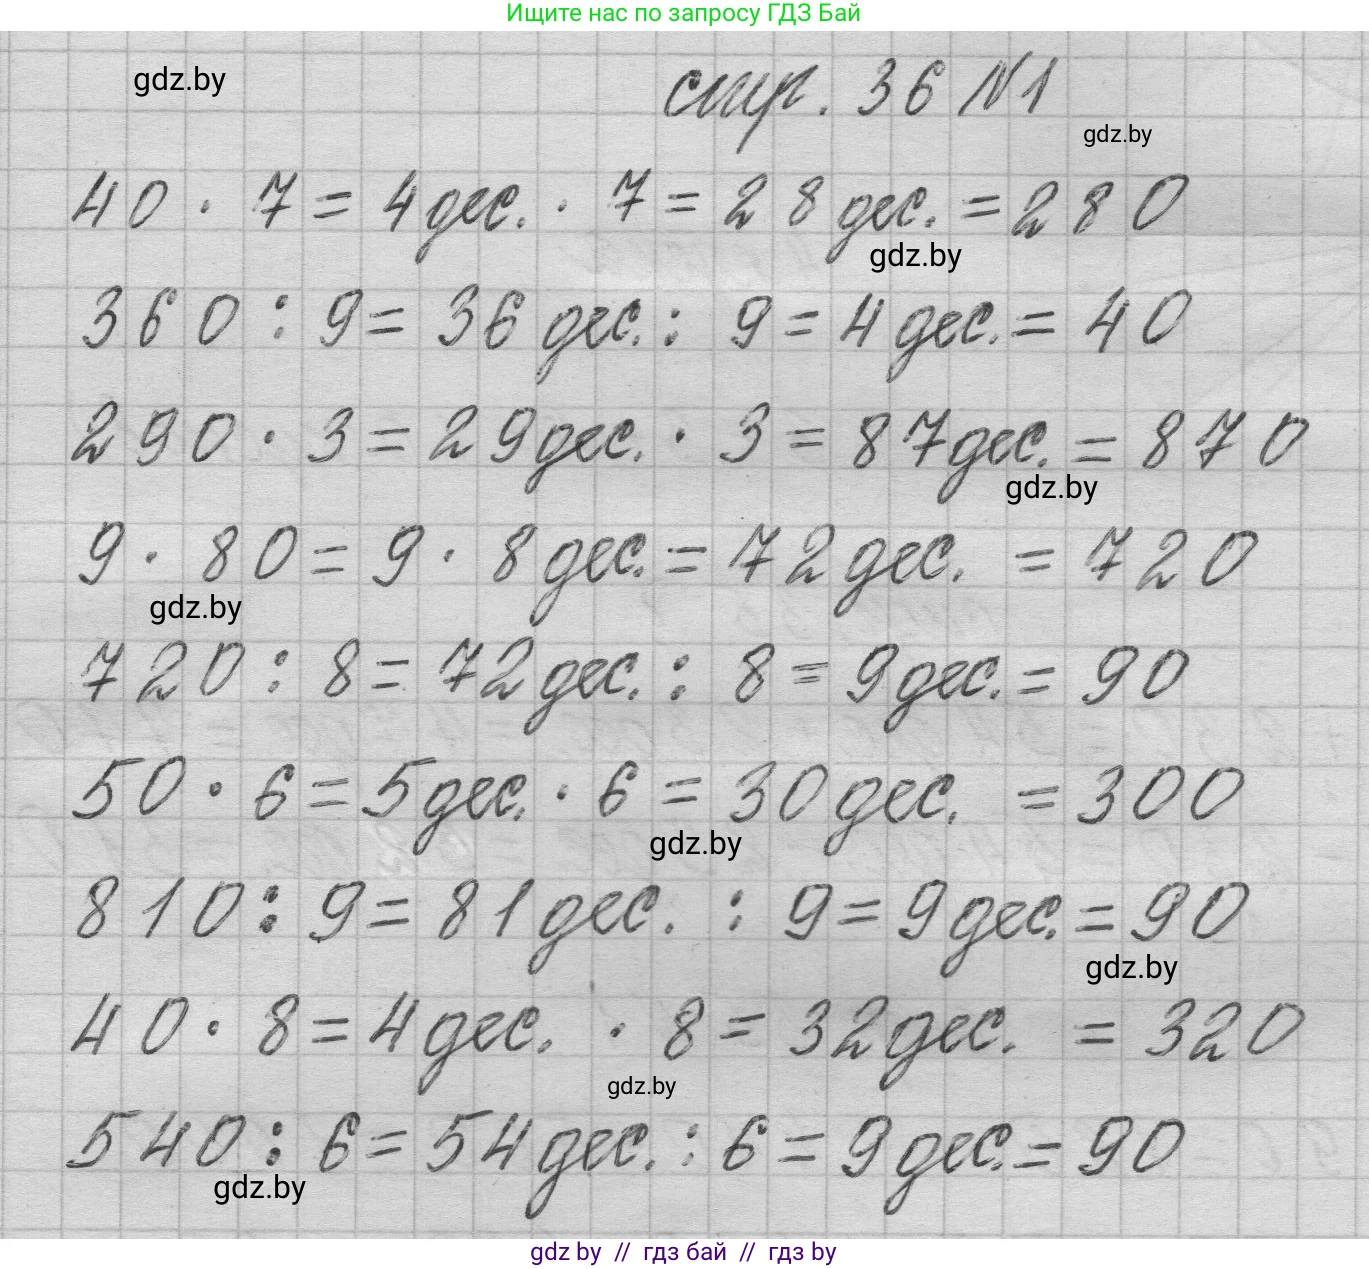 Ищите нас по запросу ГДЗ Бай
gdz.by
стр. 36 №1
gdz.by
40 · 7 = 4 дес. · 7 = 28 дес. = 280
gdz.by
360 : 9 = 36 дес. : 9 = 4 дес. = 40
290 · 3 = 29 дес. · 3 = 87 дес. = 870
gdz.by
9 · 80 = 9 · 8 дес. = 72 дес. = 720
gdz.by
720 : 8 = 72 дес. : 8 = 9 дес. = 90
50 · 6 = 5 дес. · 6 = 30 дес. = 300
gdz.by
810 : 9 = 81 дес. : 9 = 9 дес. = 90
gdz.by
40 · 8 = 4 дес. · 8 = 32 дес. = 320
gdz.by
540 : 6 = 54 дес. : 6 = 9 дес. = 90
gdz.by
gdz by // гдз бай // гдз by